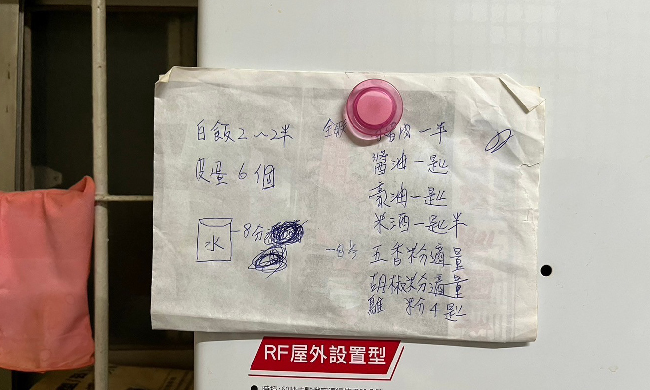 白飯2～2半
皮蛋6個
水
8分
肉一半
醬油一匙
豪油一匙
米酒一匙半
五香粉適量
胡椒粉適量
雞 粉4匙
RF屋外設置型